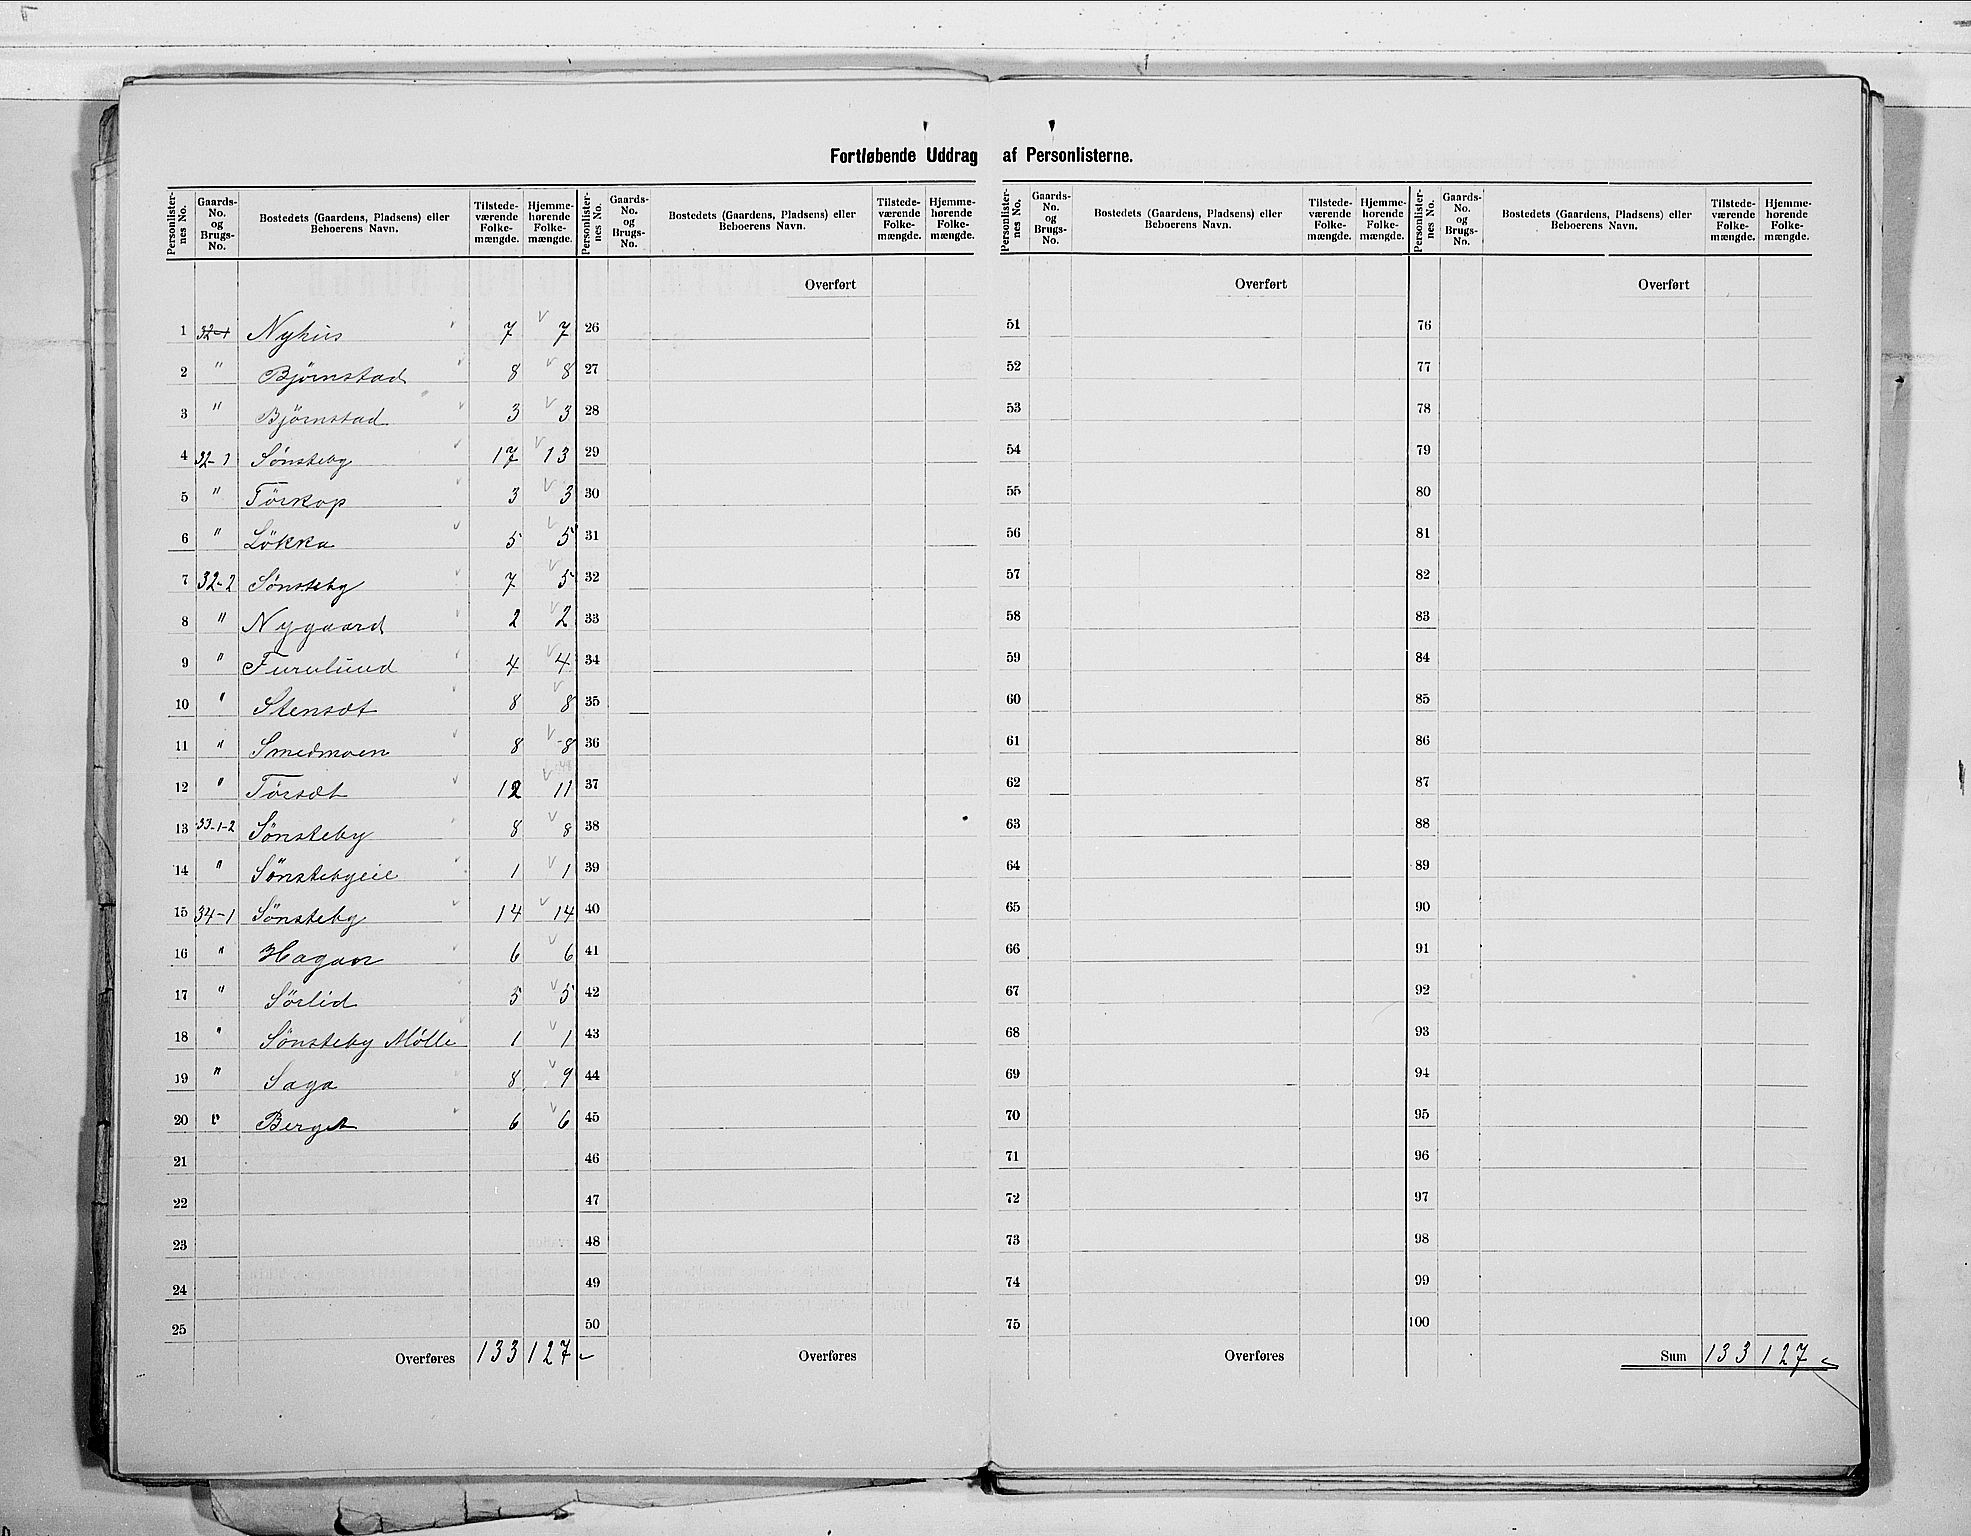 Fortløbende Uddrag af Personlisterne.
Personlisternes No. Gaards-No. og Brugs-No. Bostedets (Gaardens, Pladsens) eller Beboerens Navn. Tilstedeværende Folkemængde. Hjemmehørende Folkemængde. Personlisternes No. Gaards-No. og Brugs-No. Bostedets (Gaardens, Pladsens) eller Beboerens Navn. Tilstedeværende Folkemængde. Hjemmehørende Folkemængde. Personlisternes No. Gaards-No. og Brugs-No. Bostedets (Gaardens, Pladsens) eller Beboerens Navn. Tilstedeværende Folkemængde. Hjemmehørende Folkemængde. Personlisternes No. Gaards-No. og Brugs-No. Bostedets (Gaardens, Pladsens) eller Beboerens Navn. Tilstedeværende Folkemængde. Hjemmehørende Folkemængde.
Overført Overført Overført
1 32-1 Nyhus 7 7 26 51 76
2 " Bjørnstad 8 8 27 52 77
3 " Bjørnstad 3 3 28 53 78
4 32-1 Sønsteby 17 13 29 54 79
5 " Törskop 3 3 30 55 80
6 " Lökka 5 5 31 56 81
7 32-2 Sønsteby 7 5 32 57 82
8 " Nygaard 2 2 33 58 83
9 " Furulund 4 4 34 59 84
10 " Stensæt 8 8 35 60 85
11 " Smedmoen 8 8 36 61 86
12 " Törsæt 12 11 37 62 87
13 33-1-2 Sønsteby 8 8 38 63 88
14 " Sønstebyeie 1 1 39 64 89
15 34-1 Sönsteby 14 14 40 65 90
16 " Hagan 6 6 41 66 91
17 " Sörlid 5 5 42 67 92
18 " Sønsteby Mølle 1 1 43 68 93
19 " Saga 8 9 44 69 94
20 " Berget 6 6 45 70 95
21 46 71 96
22 47 72 97
23 48 73 98
24 49 74 99
25 50 75 100
Overføres 133 127 Overføres Overføres Sum 133 127